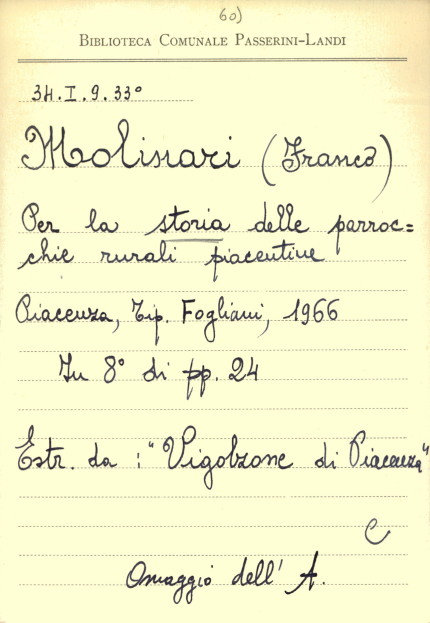 60)
BIBLIOTECA COMUNALE PASSERINI-LANDI
3H.I.9.33°
Molinari (Franco)
Per la storia delle parroc=
chie rurali piacentine
Piacenza, Tip. Fogliani, 1966
In 8° di pp. 24
Estr. da : "Vigolzone di Piacenza"
C
Omaggio dell' A.